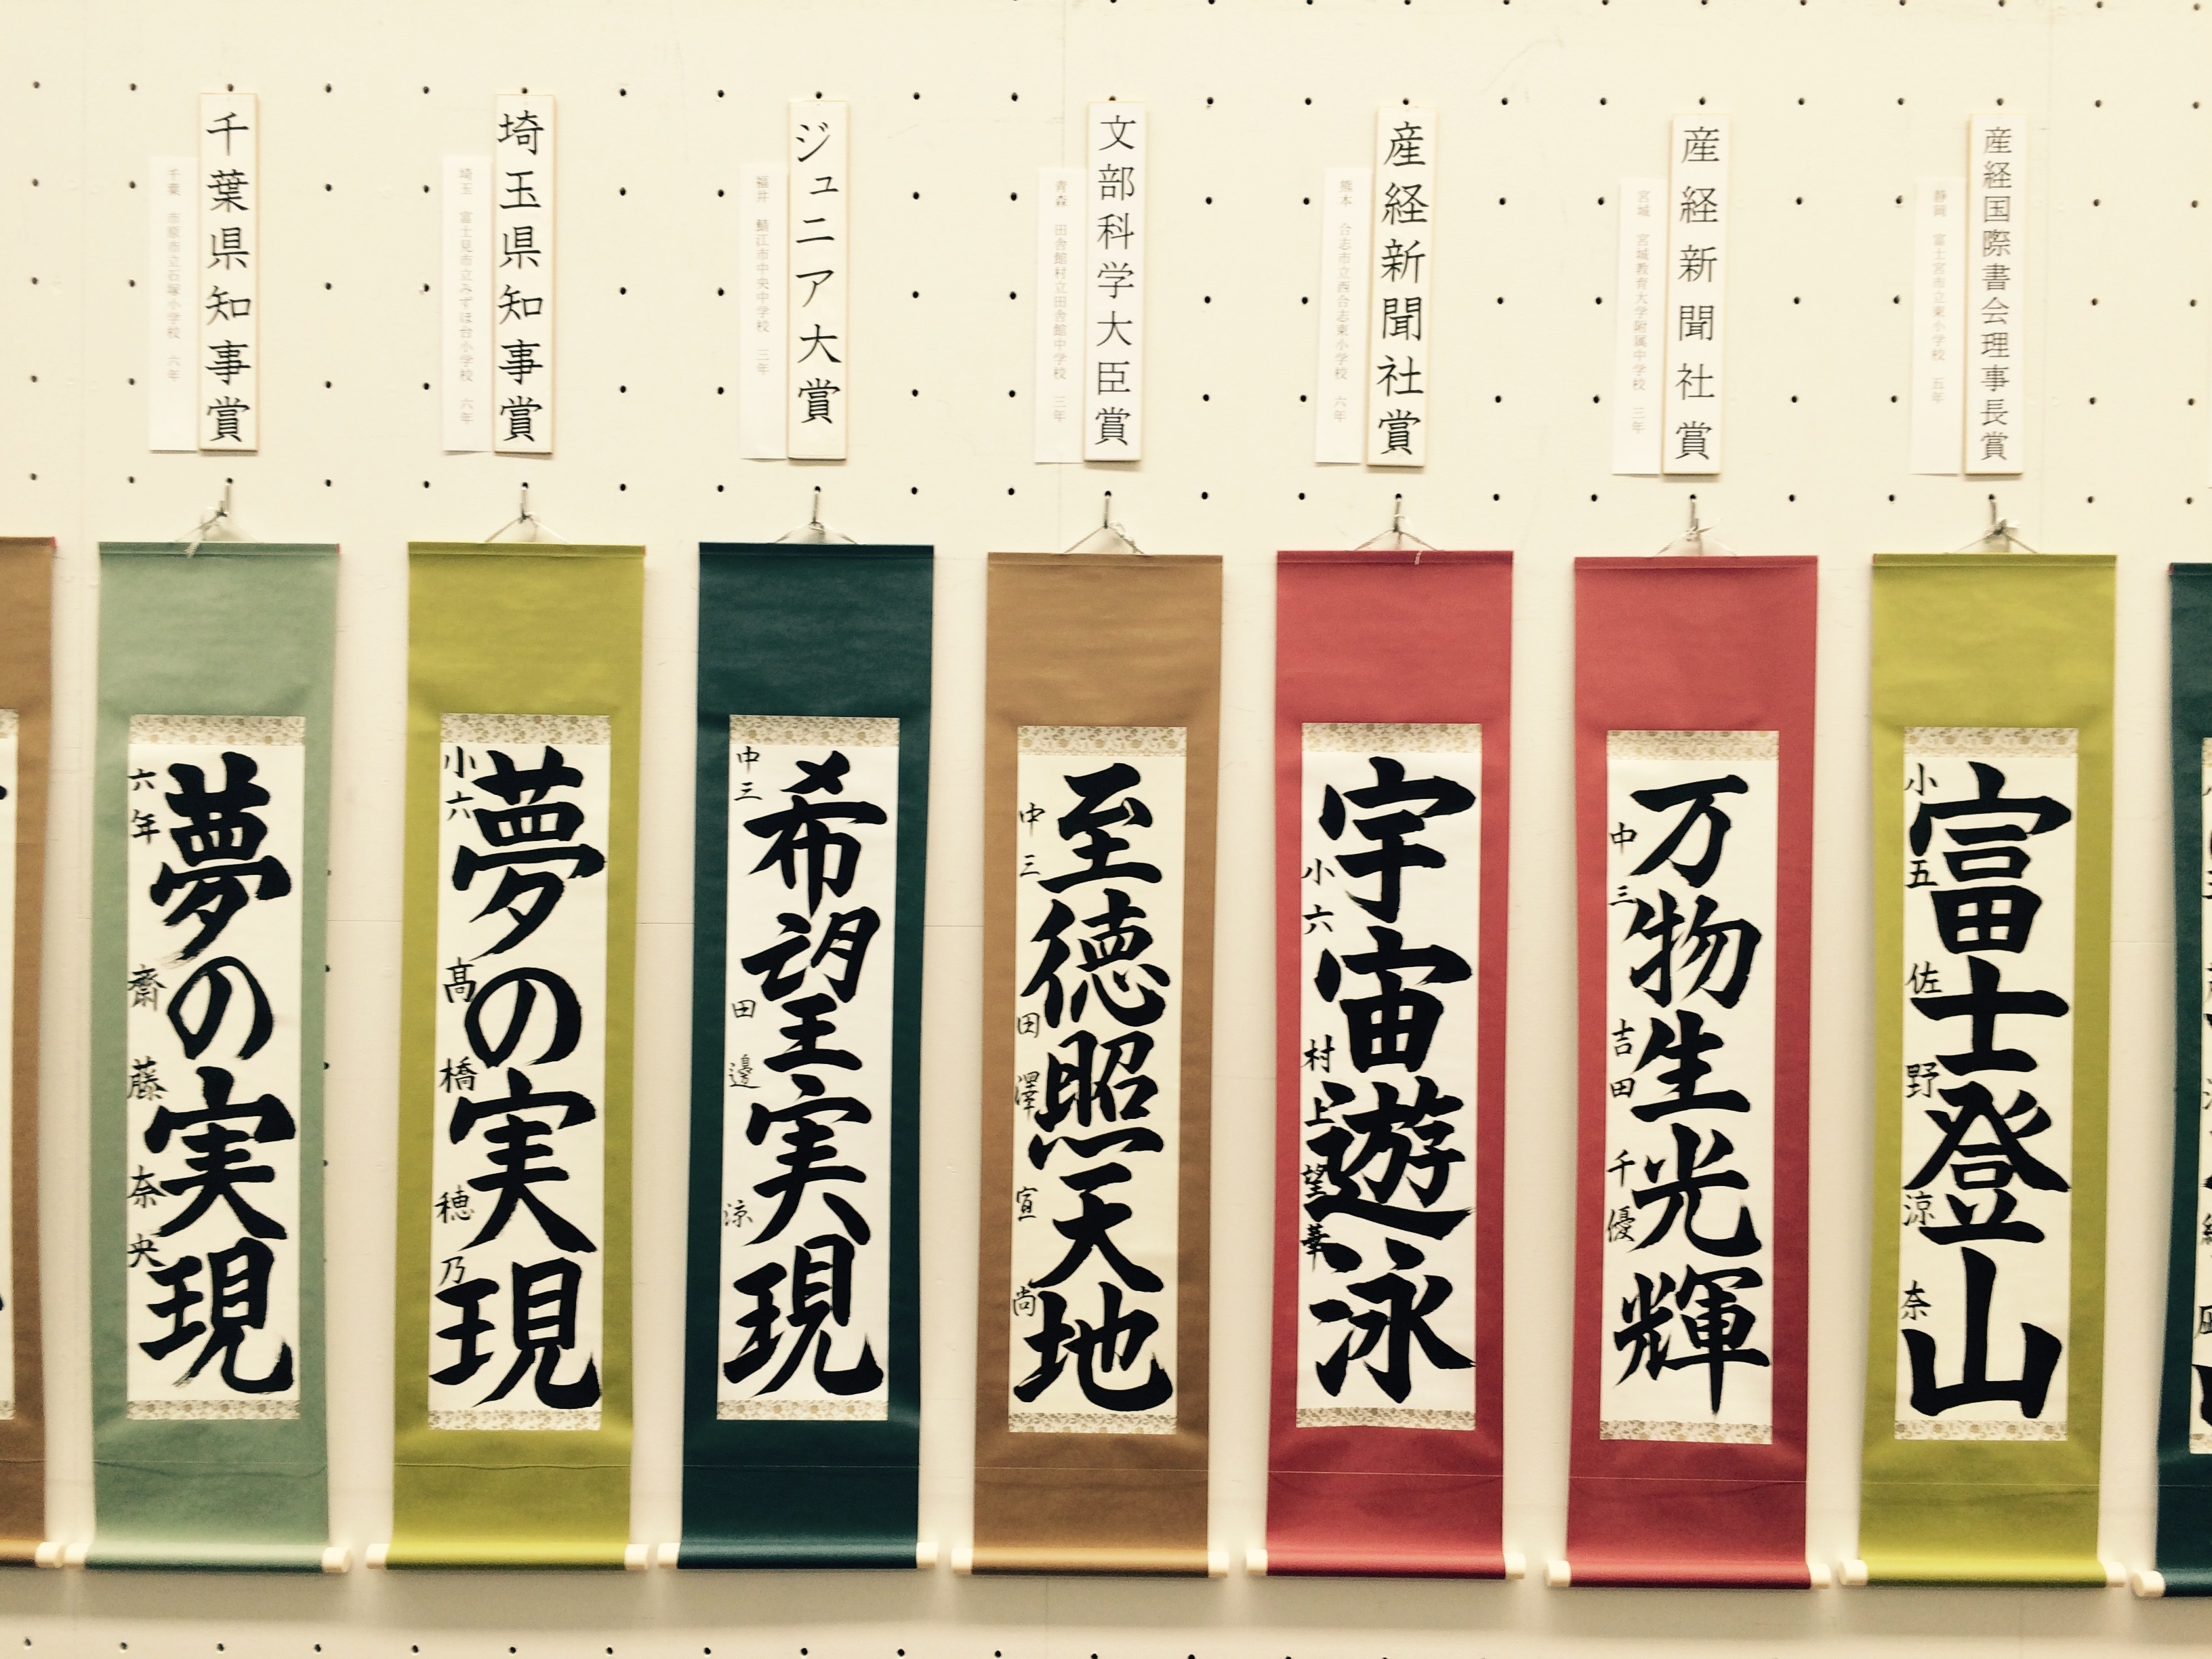 産経国際書会理事長賞
静岡 富士宮市立東小学校 五年
富士登山
小五 佐野涼奈
産経新聞社賞
宮城 宮城教育大学附属中学校 三年
万物生光輝
中三 吉田千優
産経新聞社賞
熊本 合志市立西合志東小学校 六年
宇宙遊泳
小六 村上望華
文部科学大臣賞
青森 田舎館村立田舎館中学校 三年
至徳照天地
中三 田澤宣尚
ジュニア大賞
福井 鯖江市中央中学校 三年
希望実現
中三 田邊涼
埼玉県知事賞
埼玉 富士見市立みずほ台小学校 六年
夢の実現
小六 髙橋穂乃
千葉県知事賞
千葉 市原市立石塚小学校 六年
夢の実現
六年 齋藤奈央